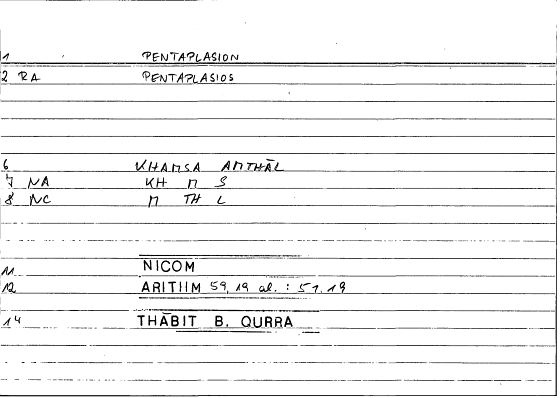 1 PENTAPLASION
2 RA PENTAPLASIOS
6 KHAMSA AMTHĀL
7 NA KH M S
8 NC M TH L
11 NICOM
12 ARITHM 59, 19 al. : 51.19
14 THĀBIT B. QURRA